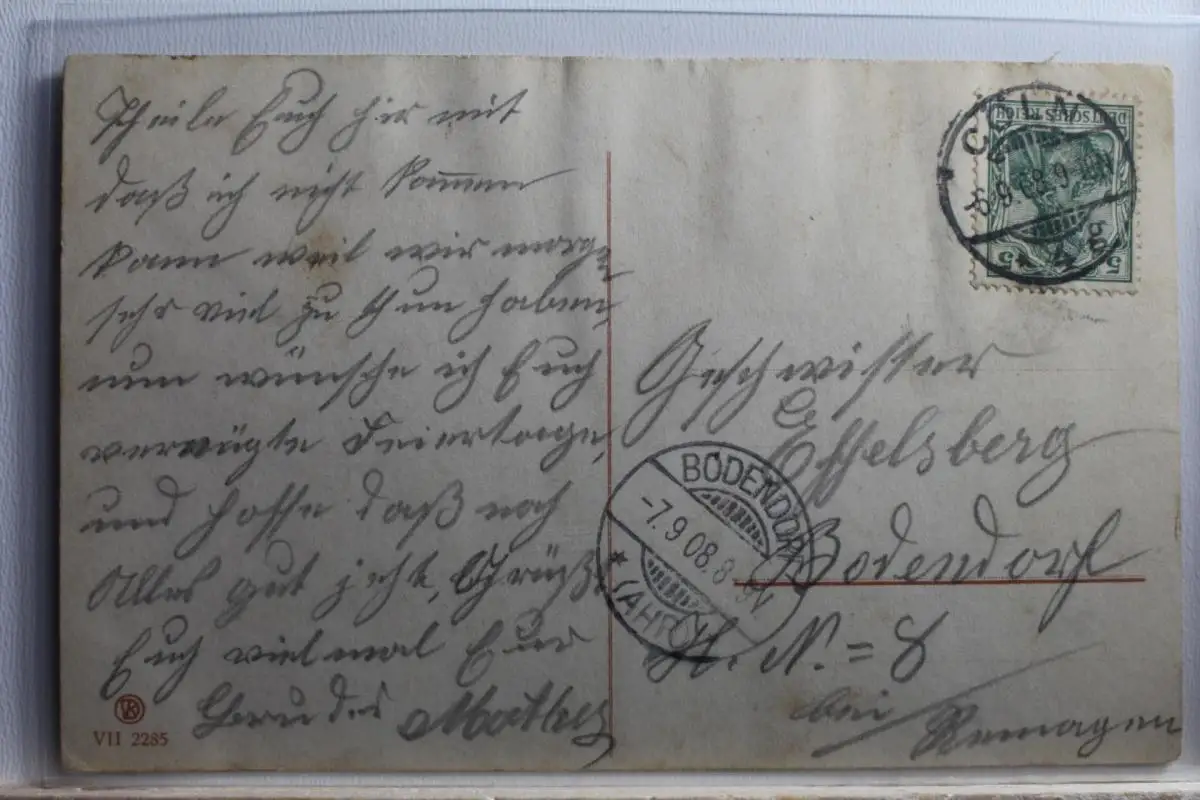 Theile Euch hir mit
daß ich nicht kom̄en
kann weil wir morgen
sehr viel zu thun haben,
nun wünsche ich Euch
vernügte Feiertage,
und hoffe daß noch
Alles gut jeht, Grüße
Euch viel mal Eur
Bruder Mathes
VII 2285
DEUTSCHES REICH
5 5
CÖLN
6.9.08.9-10N
* 4 g
Geschwister
Effelsberg
Bodendorf
H. N. = 8
bei Remagen
BODENDORF
-7.9.08.8-9V
* (AHR)